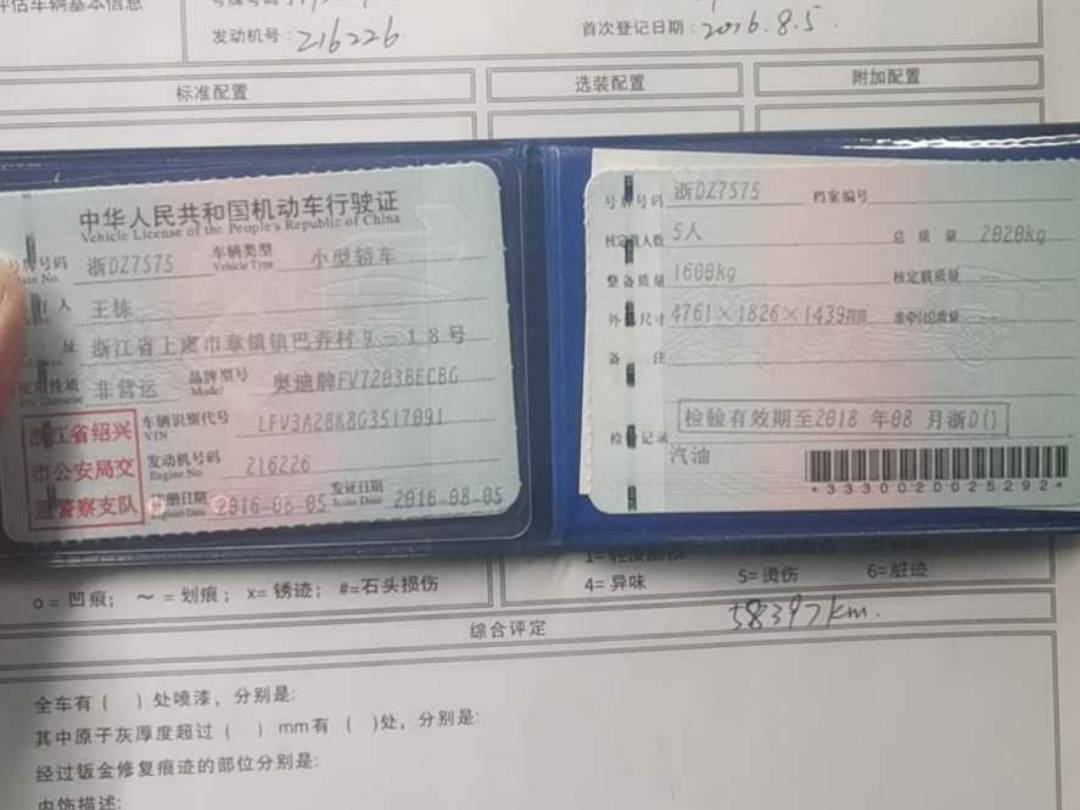 评估车辆基本信息
发动机号：216226
首次登记日期：2016.8.5.
标准配置
选装配置
附加配置
中华人民共和国机动车行驶证
Vehicle License of the People's Republic of China
号牌号码 浙DZ7575 车辆类型 小型轿车
Plate No. Vehicle Type
人 王栋
址 浙江省上虞市章镇镇巴弄村9-18号
使用性质 非营运 品牌型号 奥迪牌FV7203BECBG
Model
浙江省绍兴
市公安局交
通警察支队
车辆识别代号 LFV3A28K8G3517091
VIN
发动机号码 216226
Engine No.
注册日期 2016-08-05 发证日期 2016-08-05
Issue Date
号牌号码 浙DZ7575 档案编号
核定载人数 5人 总质量 2020kg
整备质量 1600kg 核定载质量 --
外廓尺寸 4761×1826×1439mm 准牵引总质量 --
备 注
检验有效期至2018 年08 月浙D()
检验记录
汽油
*3330020025292*
4= 异味 5= 烫伤 6= 脏迹
o = 凹痕； ～ = 划痕； x= 锈迹； #=石头损伤
综合评定 58397km.
全车有（ ）处喷漆，分别是:
其中原子灰厚度超过（ ）mm有（ ）处，分别是:
经过钣金修复痕迹的部位分别是:
内饰描述: